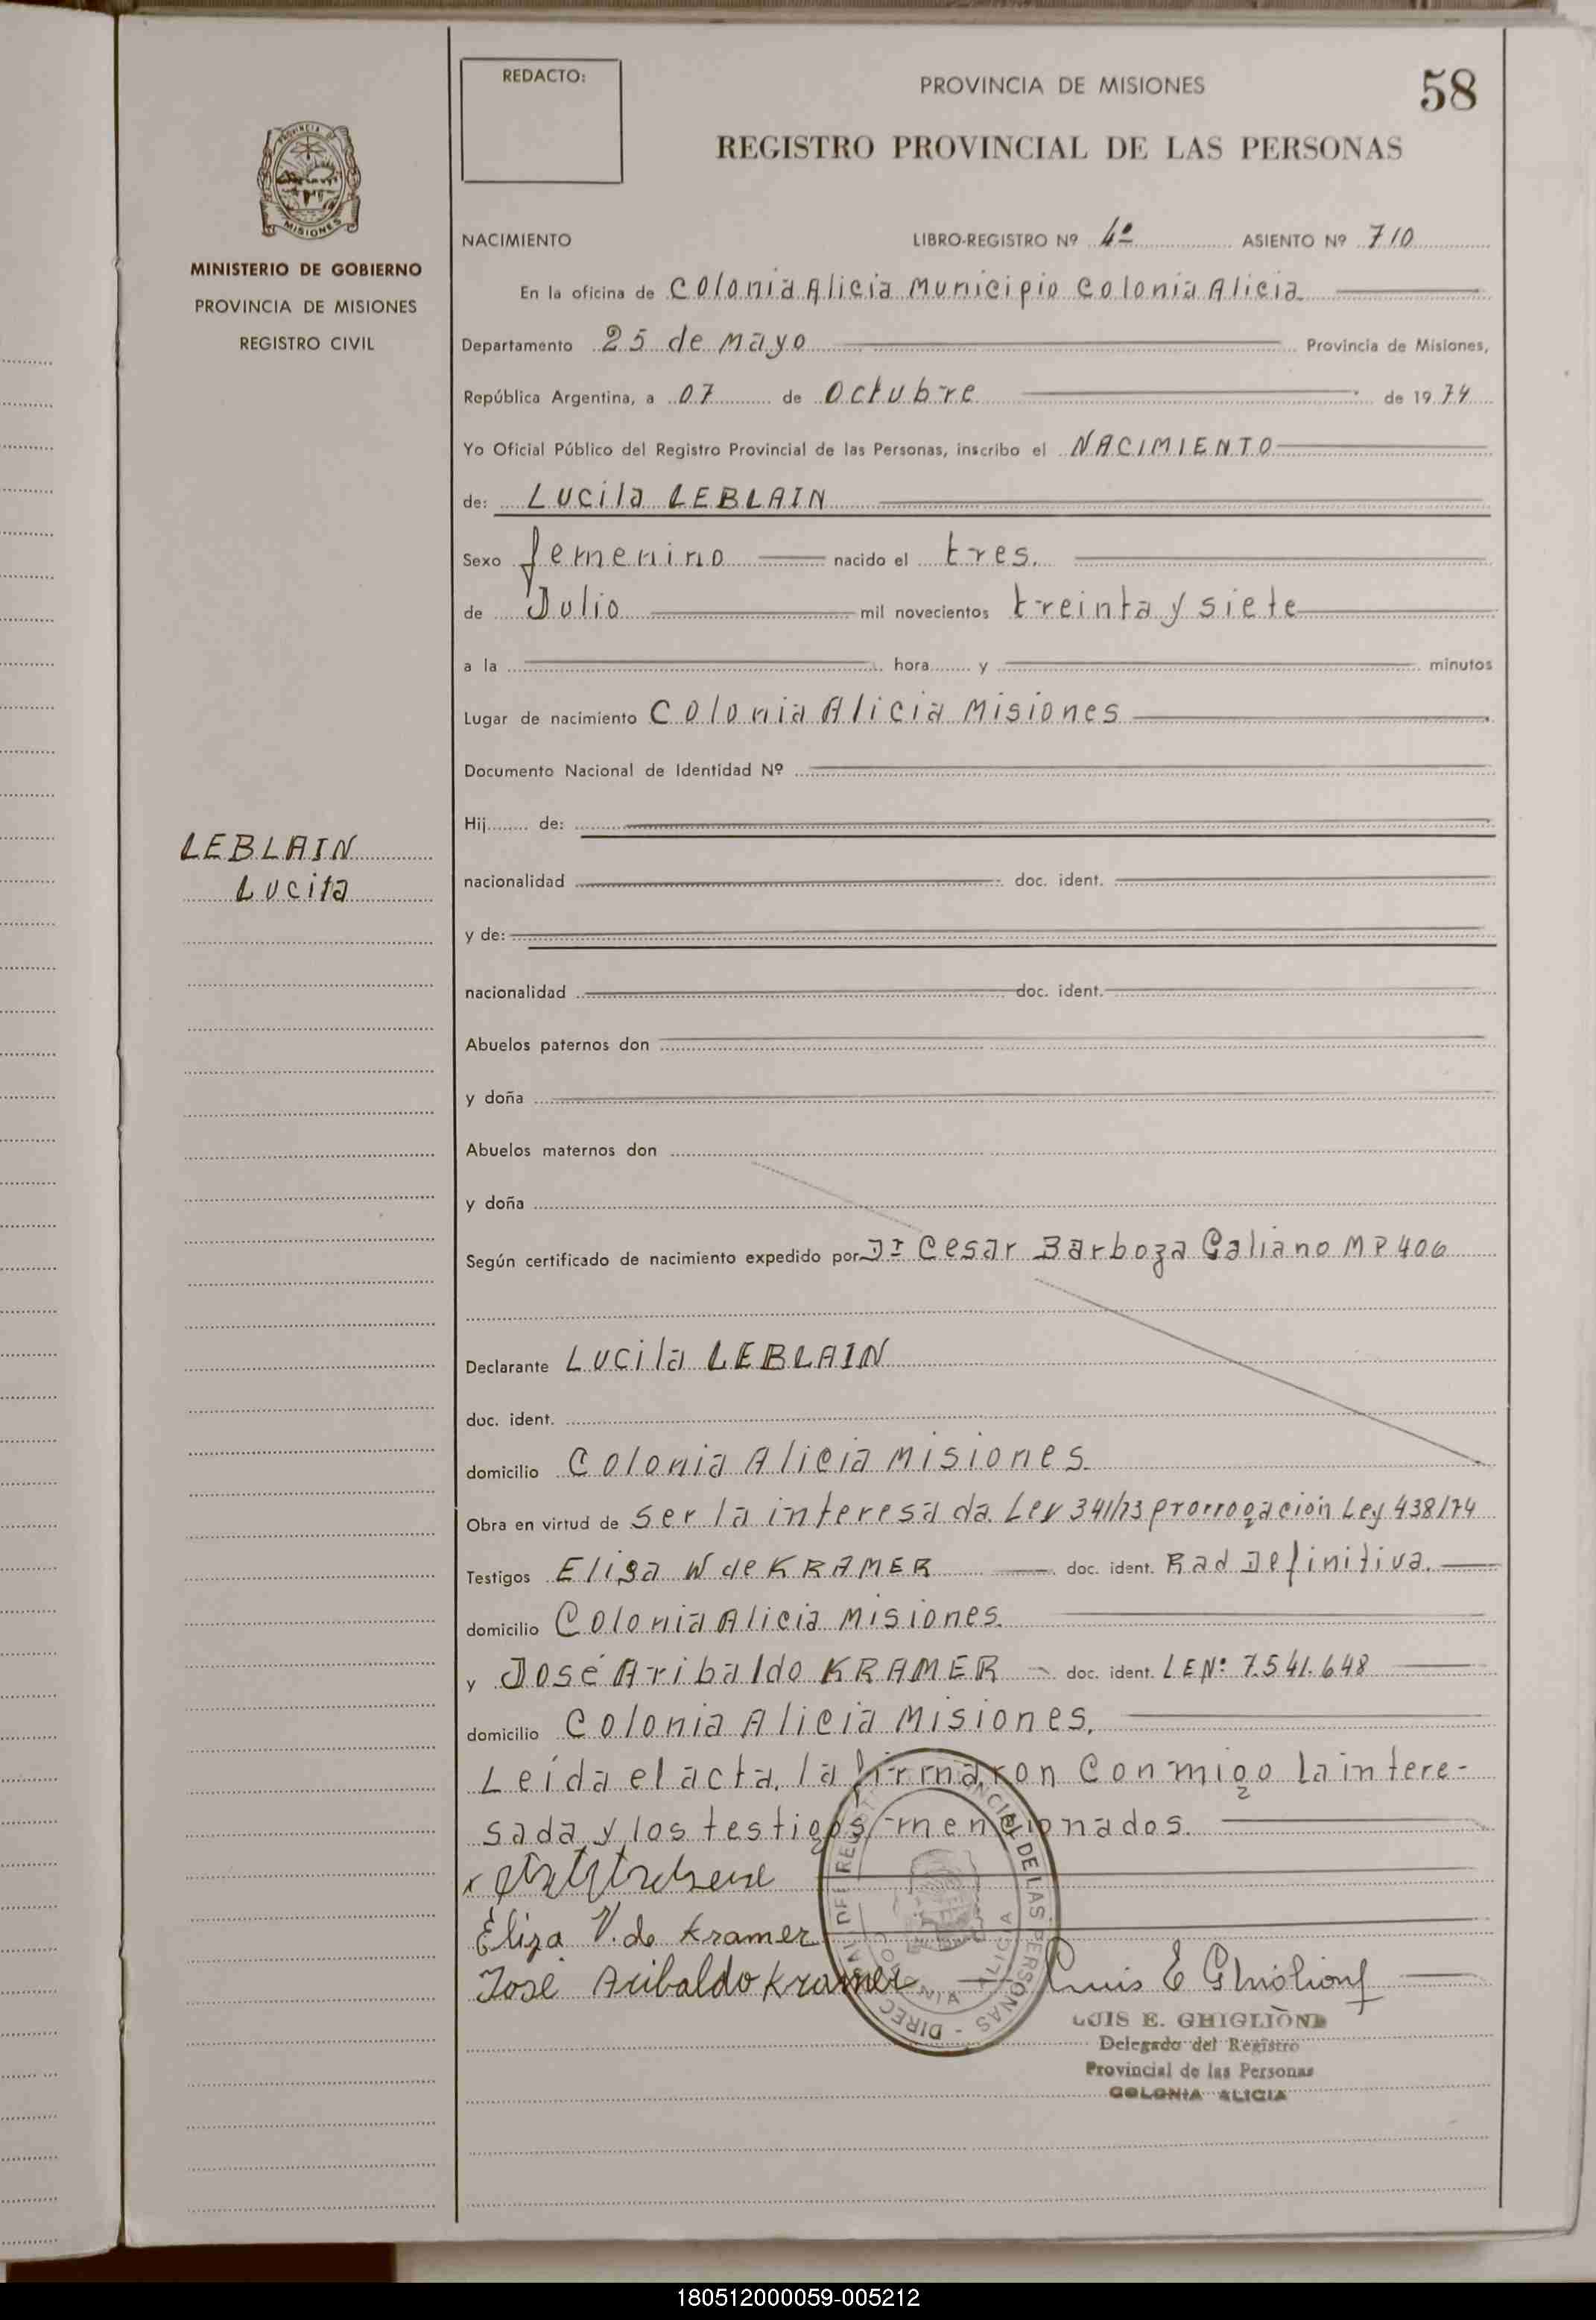 REDACTO:
PROVINCIA DE MISIONES
58
REGISTRO PROVINCIAL DE LAS PERSONAS
MISIONES
MINISTERIO DE GOBIERNO
PROVINCIA DE MISIONES
REGISTRO CIVIL
NACIMIENTO LIBRO-REGISTRO Nº 4º ASIENTO Nº 710
En la oficina de Colonia Alicia Municipio Colonia Alicia
Departamento 25 de Mayo Provincia de Misiones,
República Argentina, a 07 de Octubre de 1974
Yo Oficial Público del Registro Provincial de las Personas, inscribo el NACIMIENTO
de: Lucila LEBLAIN
Sexo femenino nacido el tres.
de Julio mil novecientos treinta y siete
a la hora y minutos
Lugar de nacimiento Colonia Alicia Misiones
Documento Nacional de Identidad Nº
Hij de:
LEBLAIN
Lucila
nacionalidad doc. ident.
y de:
nacionalidad doc. ident.
Abuelos paternos don
y doña
Abuelos maternos don
y doña
Según certificado de nacimiento expedido por Dr Cesar Barboza Galiano MP 406
Declarante Lucila LEBLAIN
doc. ident.
domicilio Colonia Alicia Misiones
Obra en virtud de ser la interesada. Ley 341/73 prorrogación Ley 438/74
Testigos Elisa W de KRAMER doc. ident. Rad Definitiva.
domicilio Colonia Alicia Misiones
y José Aribaldo KRAMER doc. ident. LENº 7.541.648
domicilio Colonia Alicia Misiones.
Leida el acta, la firmaron Conmigo la intere-
sada y los testigos mencionados.
Eliza V. de Kramer
José Aribaldo Kramer Luis E Ghiglione
DE LAS PERSONAS - DIREC
COLONIA ALICIA
LUIS E. GHIGLIONE
Delegado del Registro
Provincial de las Personas
COLONIA ALICIA
180512000059-005212